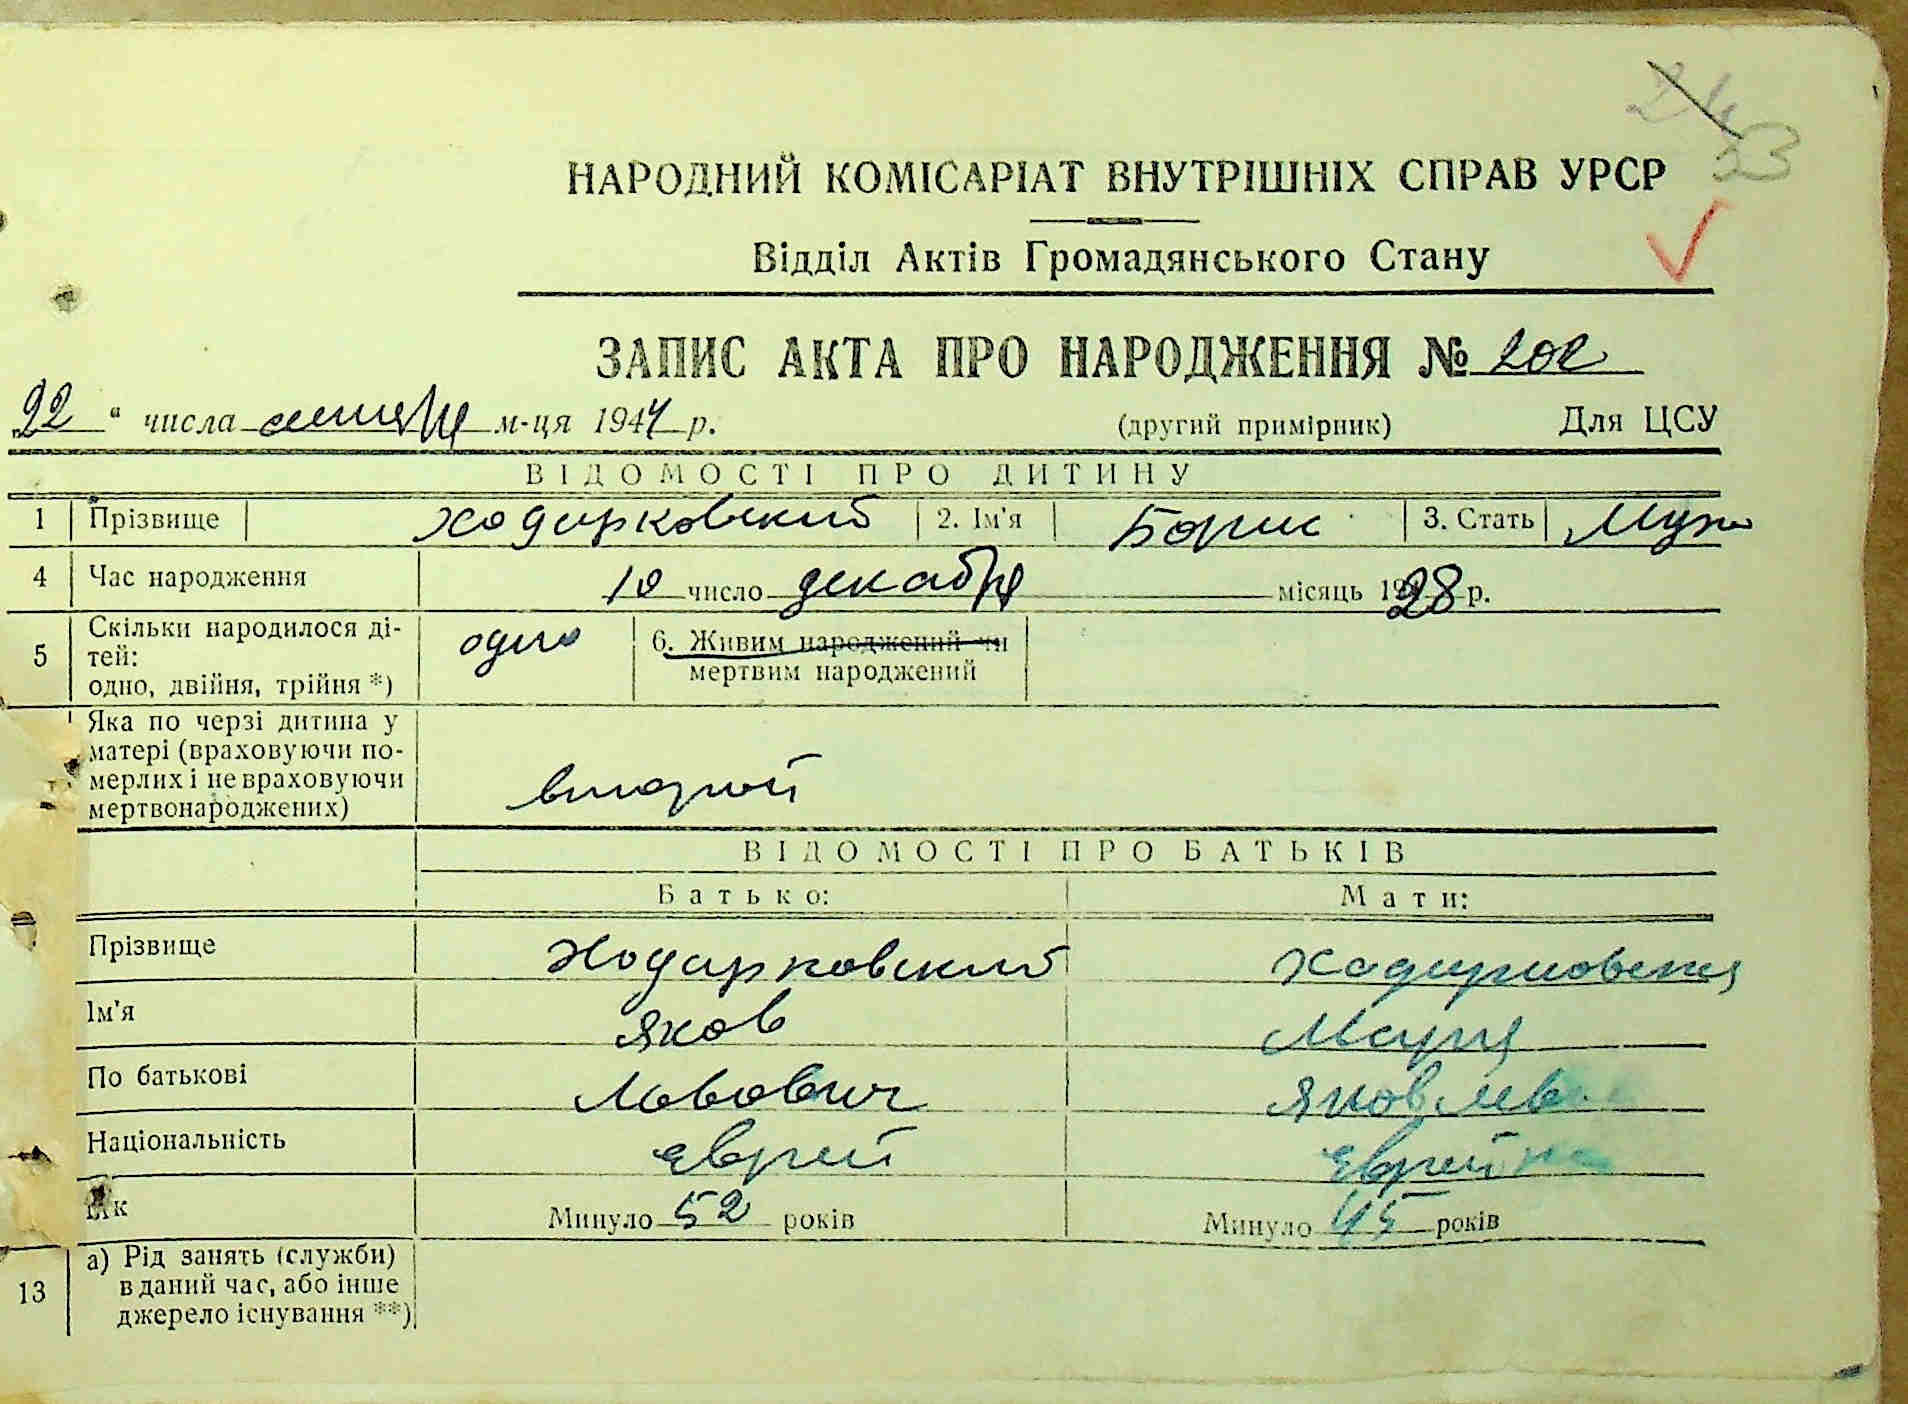 24 53
НАРОДНИЙ КОМІСАРІАТ ВНУТРІШНІХ СПРАВ УРСР
Відділ Актів Громадянського Стану
ЗАПИС АКТА ПРО НАРОДЖЕННЯ № 202
22 " числа сентября м-ця 1944 р. (другий примірник) Для ЦСУ
ВІДОМОСТІ ПРО ДИТИНУ
1 Прізвище Ходарковский 2. Ім'я Борис 3. Стать Муж
4 Час народження 10 число декабря місяць 1928 р.
5 Скільки народилося ді-
тей:
одно, двійня, трійня *) одно 6. Живим народжений чи
мертвим народжений
Яка по черзі дитина у
матері (враховуючи по-
мерлих і не враховуючи
мертвонароджених) второй
ВІДОМОСТІ ПРО БАТЬКІВ
Батько: Мати:
Прізвище Ходарковский Ходарковская
Ім'я Яков Мария
По батькові Львович Яковлев
Національність Еврей Еврейка
Вік Минуло 52 років Минуло 45 років
13 а) Рід занять (служби)
в даний час, або інше
джерело існування **)